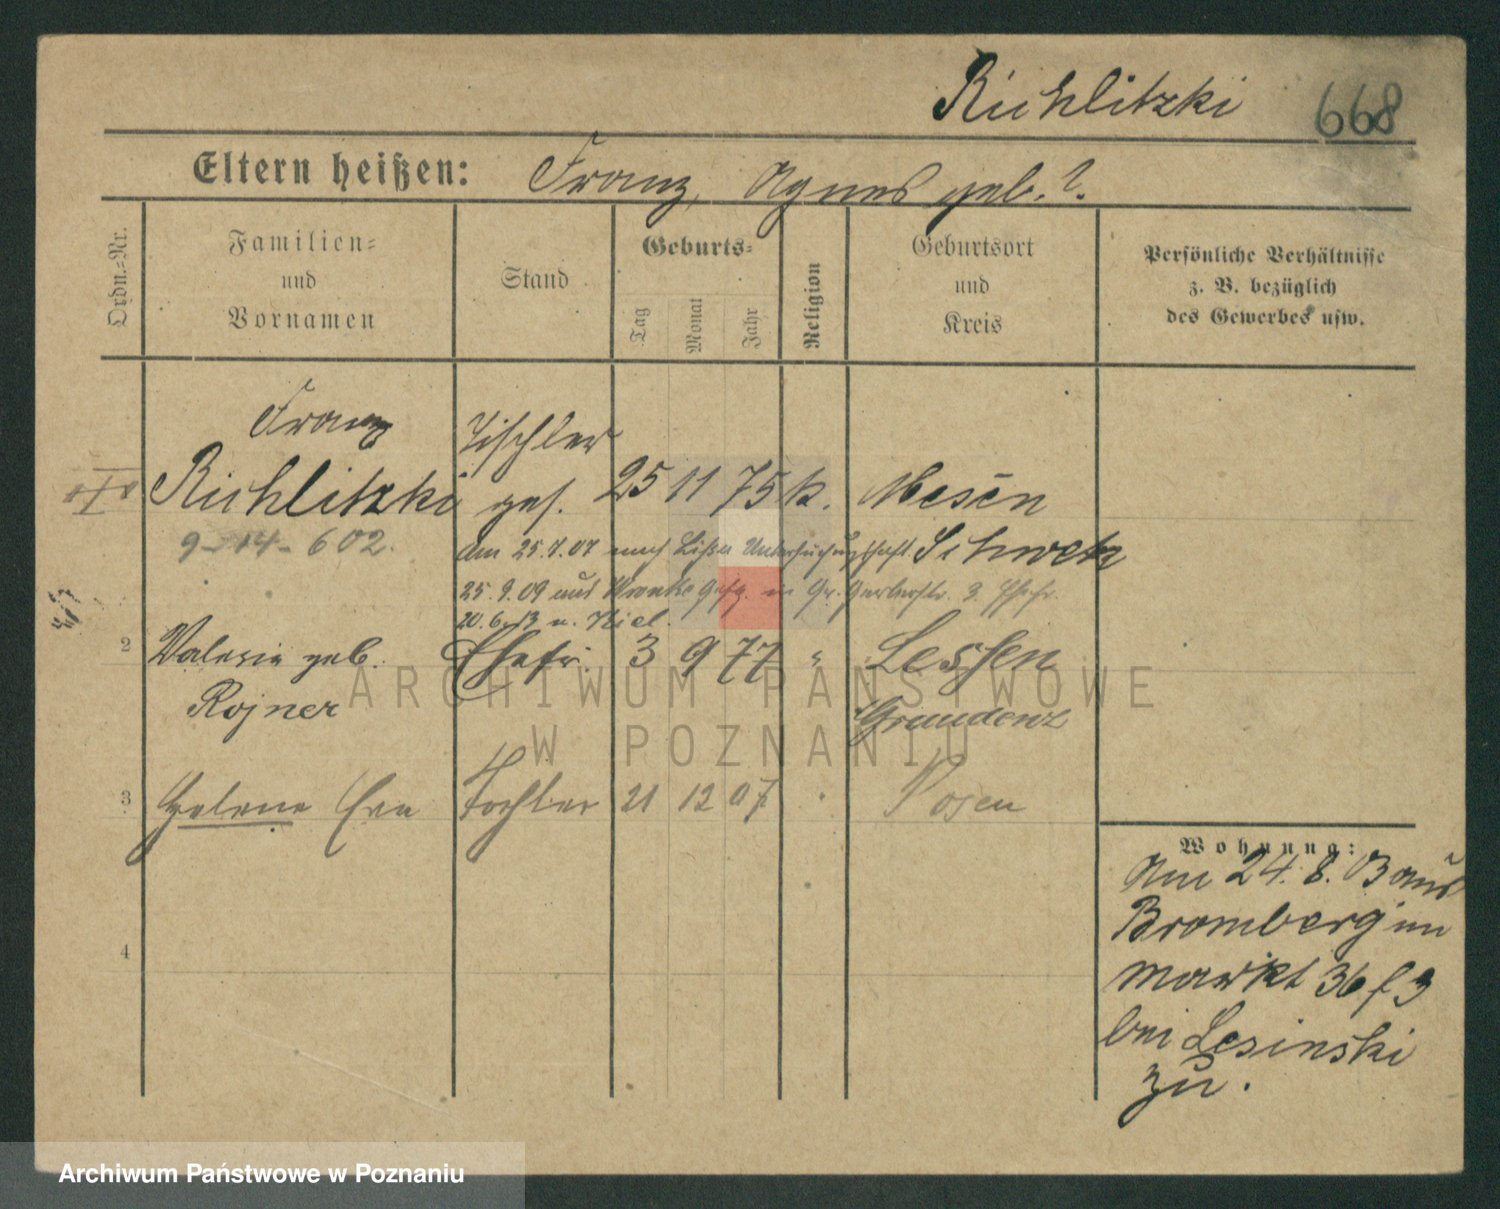 Richlitzki 668
Eltern heißen: Franz, Agnes geb. ?.
Ordn.-Nr.
Familien-
und
Vornamen
Stand
Geburts-
Tag
Monat
Jahr
Religion
Geburtsort
und
Kreis
Persönliche Verhältnisse
z. B. bezüglich
des Gewerbes usw.
Franz Tischler
Richlitzki ges. 25 11 75 k.
9-14-602.
am 25.7.07 nach Lissa Untersuchungshaft Schwetz
25.9.09 aus Wronke Gefg. in Gr. Gerberstr.
20.6.13 n. Kiel.
2 Valerie geb. Ehefr. 3 9 77 " Lessen
Rojner Graudenz
3 Helene Eva Tochter 21 12 07 Posen
4
Wohnung:
Am 24.8.03 aus
Bromberg
markt 36
bei Lesinski
zu.
ARCHIWUM PAŃSTWOWE
W POZNANIU
Archiwum Państwowe w Poznaniu